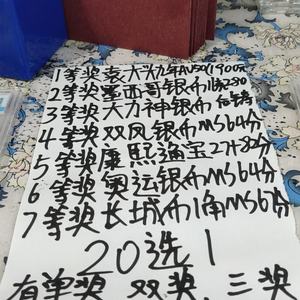 1等奖袁大头九年AU50/1900元
2等奖墨西哥银布1标280
3等奖大力神银布
4等奖双凤银布MS64分
5等奖康熙通宝27+82分
6等奖奥运银布MS64分
7等奖长城布1角MS6分
20选1
有单奖 双奖 三奖